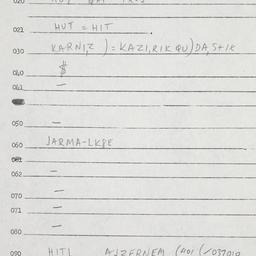 020
021 HUT = HIT
030 KARNI,Z ) = KAZI,RIK QU)DA,S+IR
040 $
041 —
050 —
060 JARMA-LKPE
061
062 —
070 —
071 —
080 —
090 HITL AJZERNEM (401 (/037019